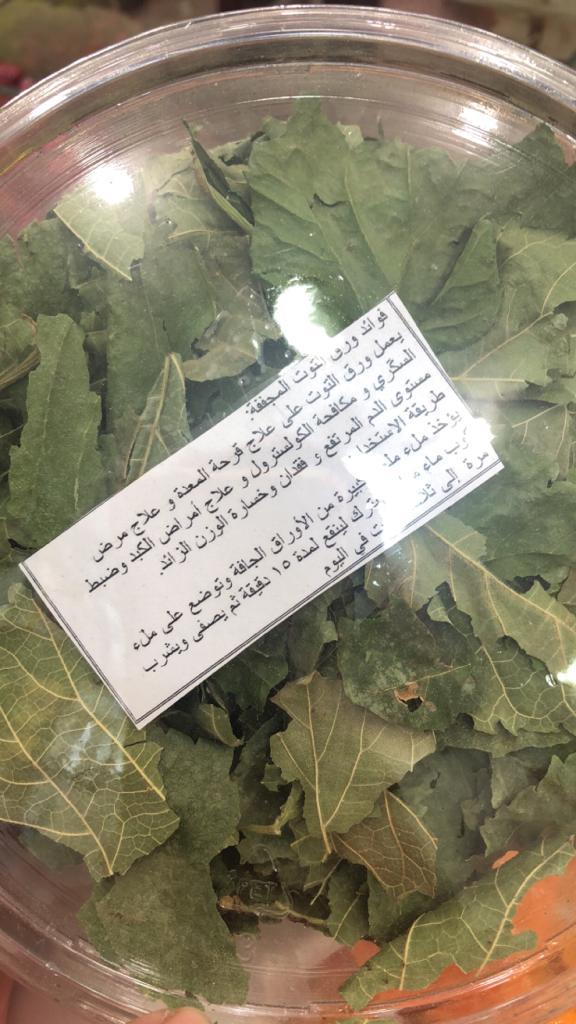 فوائد ورق التوت المجففة
يعمل ورق التوت على علاج قرحة المعدة و علاج مرض
السكري و مكافحة الكولسترول و علاج أمراض الكبد وضبط
مستوى الدم المرتفع و فقدان وخسارة الوزن الزائد.
طريقة الاستخدا
يؤخذ ملء كبيرة من الأوراق الجافة وتوضع على ملء
ماء وتترك لينقع لمدة ١٥ دقيقة ثم يصفى ويشرب
مرة إلى ثلاث في اليوم
PET